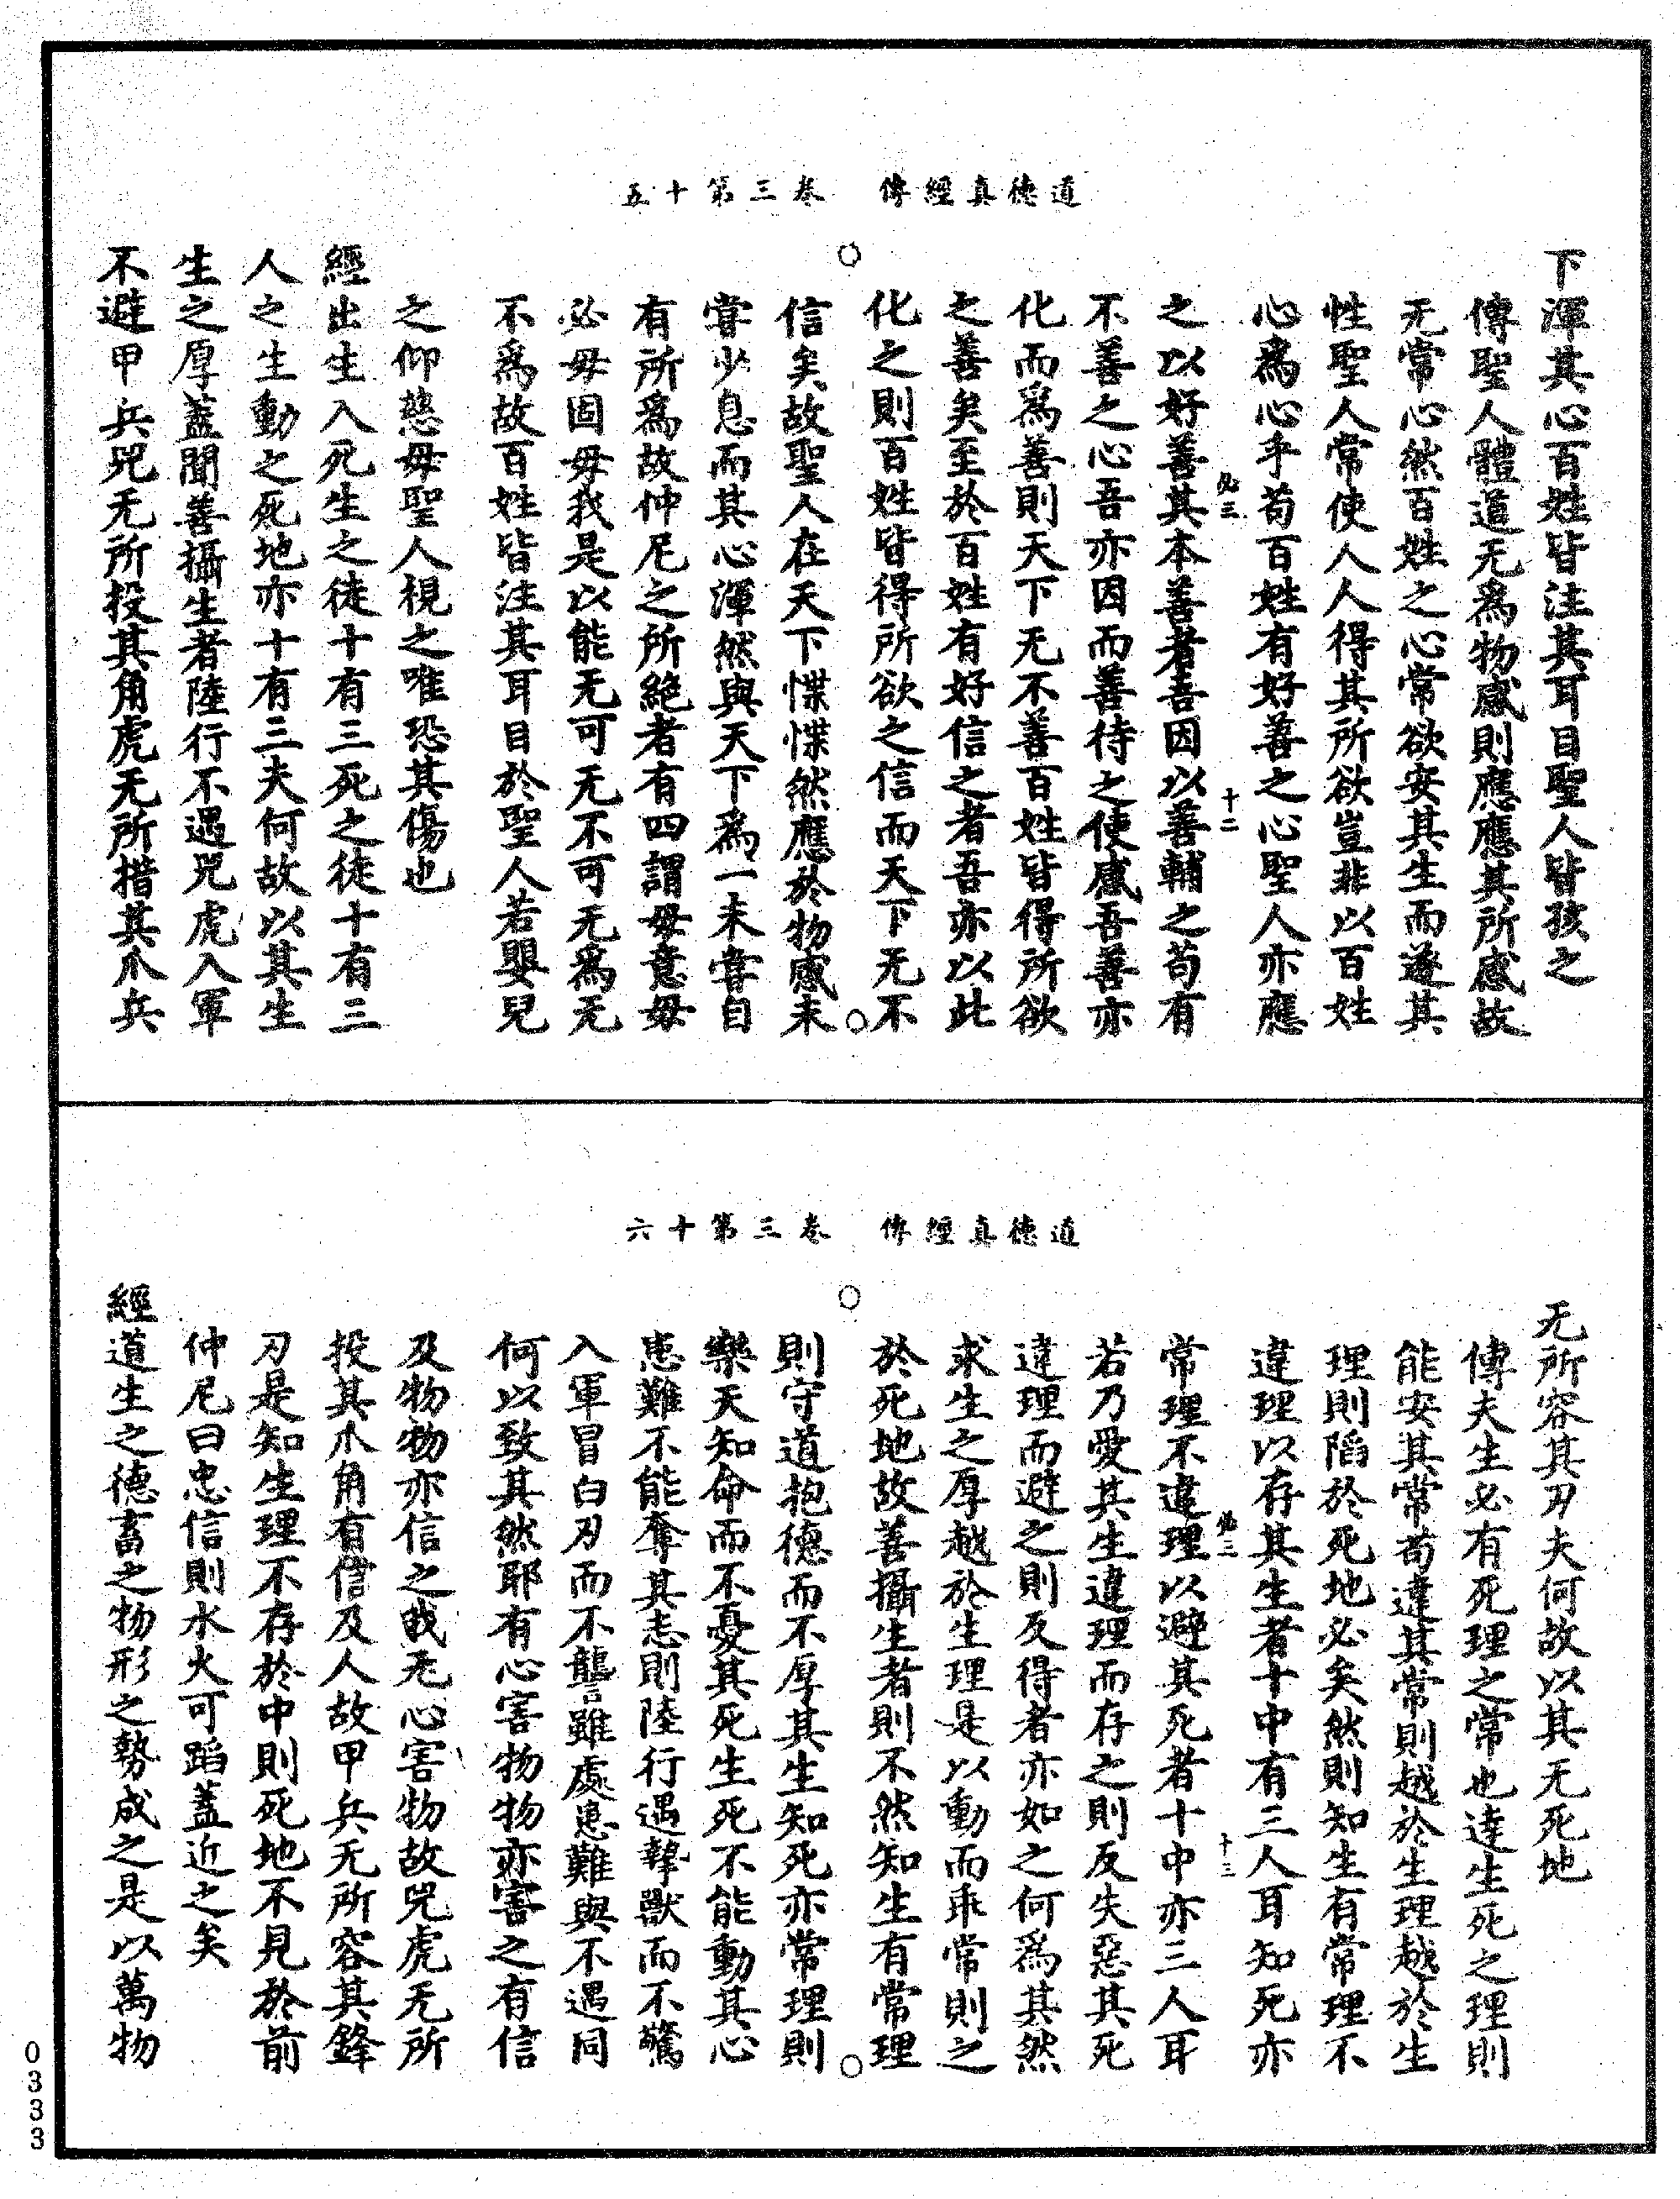 道德真經傳　卷三第十五
下渾其心百姓皆注其耳目聖人皆孩之
傳聖人體道无爲物感則應應其所感故
无常心然百姓之心常欲安其生而遂其
性聖人常使人人得其所欲豈非以百姓
心爲心乎苟百姓有好善之心聖人亦應
十二
之以好善其本善者吾因以善輔之苟有
不善之心吾亦因而善待之使感吾善亦
化而爲善則天下无不善百姓皆得所欲
之善矣至於百姓有好信之者吾亦以此
化之則百姓皆得所欲之信而天下无不
信矣故聖人在天下惵惵然應於物感未
甞少息而其心渾然與天下爲一未甞自
有所爲故仲尼之所絶者有四謂毋意毋
必毋固毋我是以能无可无不可无爲无
不爲故百姓皆注其耳目於聖人若嬰兒
之仰慈母聖人視之唯恐其傷也
經出生入死生之徒十有三死之徒十有三
人之生動之死地亦十有三夫何故以其生
生之厚蓋聞善攝生者陸行不遇兕虎入軍
不避甲兵兕无所投其角虎无所措其爪兵
道德真經傳　卷三第十六
无所容其刃夫何故以其无死地
傳夫生必有死理之常也達生死之理則
能安其常苟違其常則越於生理越於生
理則陷於死地必矣然則知生有常理不
違理以存其生者十中有三人耳知死亦
十三
常理不違理以避其死者十中亦三人耳
若乃愛其生違理而存之則反失惡其死
違理而避之則反得者亦如之何爲其然
求生之厚越於生理是以動而乖常則之
於死地故善攝生者則不然知生有常理
則守道抱德而不厚其生知死亦常理則
樂天知命而不憂其死生死不能動其心
患難不能奪其志則陸行遇摯獸而不驚
入軍冒白刃而不讋雖處患難與不遇同
何以致其然耶有心害物物亦害之有信
及物物亦信之我无心害物故兕虎无所
投其爪角有信及人故甲兵无所容其鋒
刃是知生理不存於中則死地不見於前
仲尼曰忠信則水火可蹈蓋近之矣
經道生之德畜之物形之勢成之是以萬物
0333